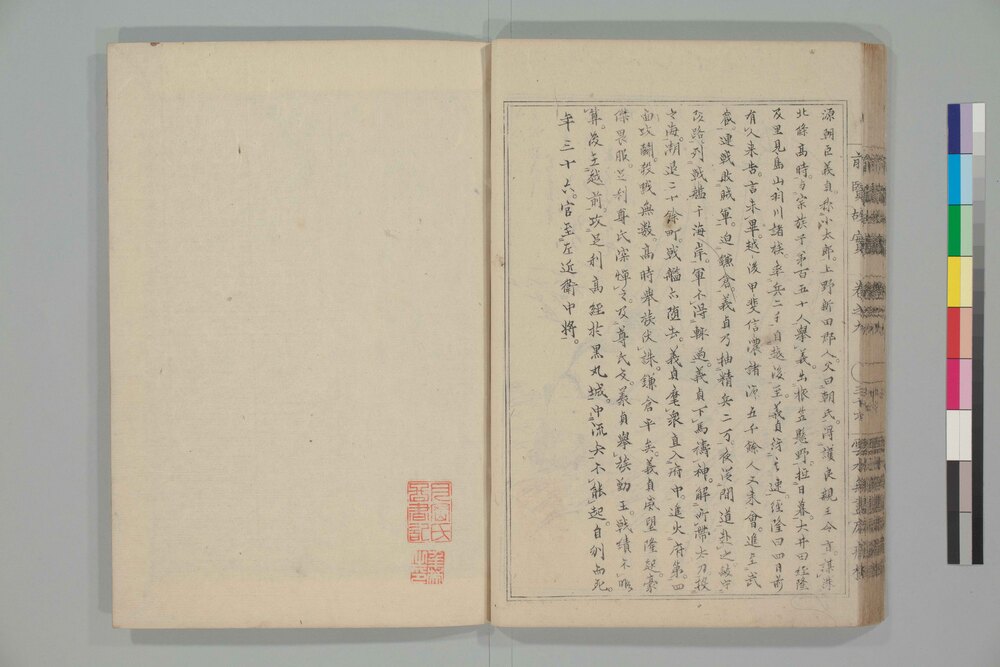 源朝臣義貞称小太郎。上野新田郡人。父曰朝氏。得護良親王令旨。謀誅
北條高時。与宗族子弟百五十人舉義。出據笠懸野。拉日暮。大井田経隆
及里見鳥山羽川諸族。率兵二千自越後至。義貞訝之速。経隆曰四日前
有人来告。言未畢越後甲斐信濃諸源五千餘人又来會。進至武
蔵。連戦敗賊軍。迫鎌倉。義貞乃抽精兵二万。夜従間道赴之。敵守
路列戦艦于海岸。軍不得輙過。義貞下馬祷神。解所帶大刀投
之海。潮退二十餘町。戦艦亦随去。義貞麾衆直入府中。進火府第。四
面攻闘。殺賊無數。高時挙族伏誅。鎌倉平矣。義貞威望隆起。豪
傑畏服。足利尊氏深憚之。及尊氏反。義貞舉族勤王。戦績不暇
算。後至越前。攻足利高経於黒丸城。中流矢不能起。自刎而死。
年三十六。官至左近衛中将。
前賢故實